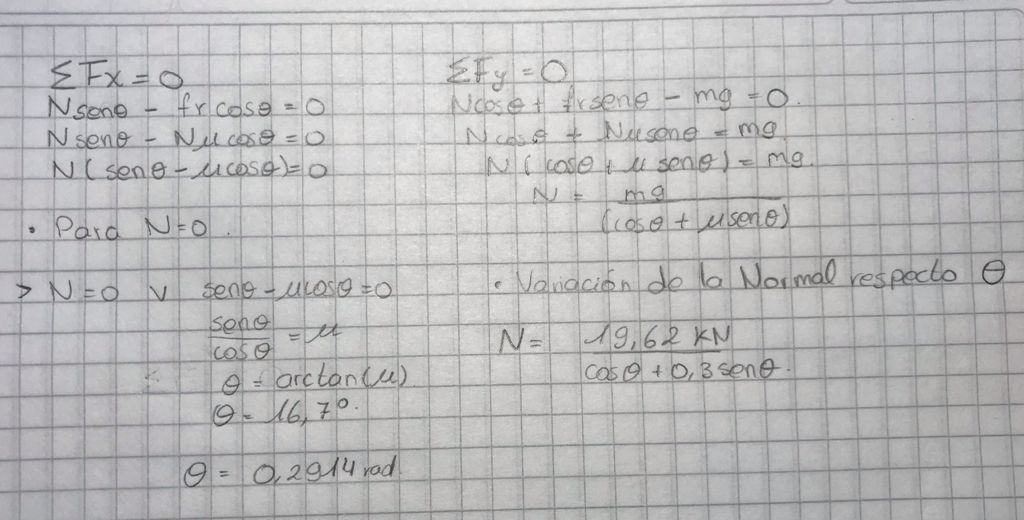 ΣFx = 0
Nsenθ - frcosθ = 0
Nsenθ - Nμcosθ = 0
N(senθ - μcosθ) = 0
• Para N=0.
> N=0 v senθ - μcosθ = 0
senθ/cosθ = μ
θ = arctan(μ)
θ = 16,7°.
θ = 0,2914 rad
ΣFy = 0
Ncosθ + frsenθ - mg = 0.
Ncosθ + Nμsenθ = mg
N(cosθ + μsenθ) = mg.
N = mg/(cosθ + μsenθ)
• Variación de la Normal respecto θ
N = 19,62 KN/cosθ + 0,3senθ.